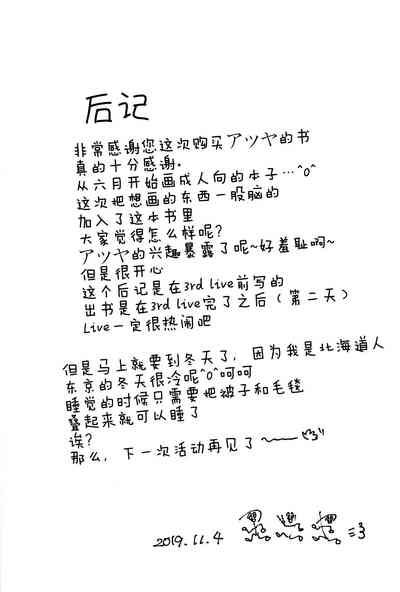 后记
非常感谢您这次购买アツヤ的书
真的十分感谢。
从六月开始画成人向的本子…^o^
这次把想画的东西一股脑的
加入了这本书里
大家觉得怎么样呢?
アツヤ的兴趣暴露了呢~好羞耻啊~
但是很开心
这个后记是在3rd live前写的
出书是在3rd live完了之后(第二天)
Live一定很热闹吧
但是马上就要到冬天了,因为我是北海道人
东京的冬天很冷呢^o^呵呵
睡觉的时候只需要把被子和毛毯
叠起来就可以睡了
诶?
那么,下一次活动再见了
2019.11.4